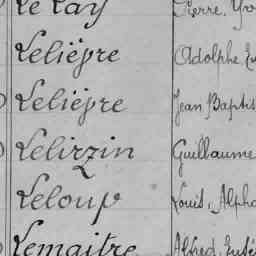 Le Lay Pierre, Yv
Lelièpre Adolphe Eu
Lelièpre Jean Baptis
Lelizzin Guillaume
Leloup Louis, Alpho
Lemaitre Alfred, Eusé